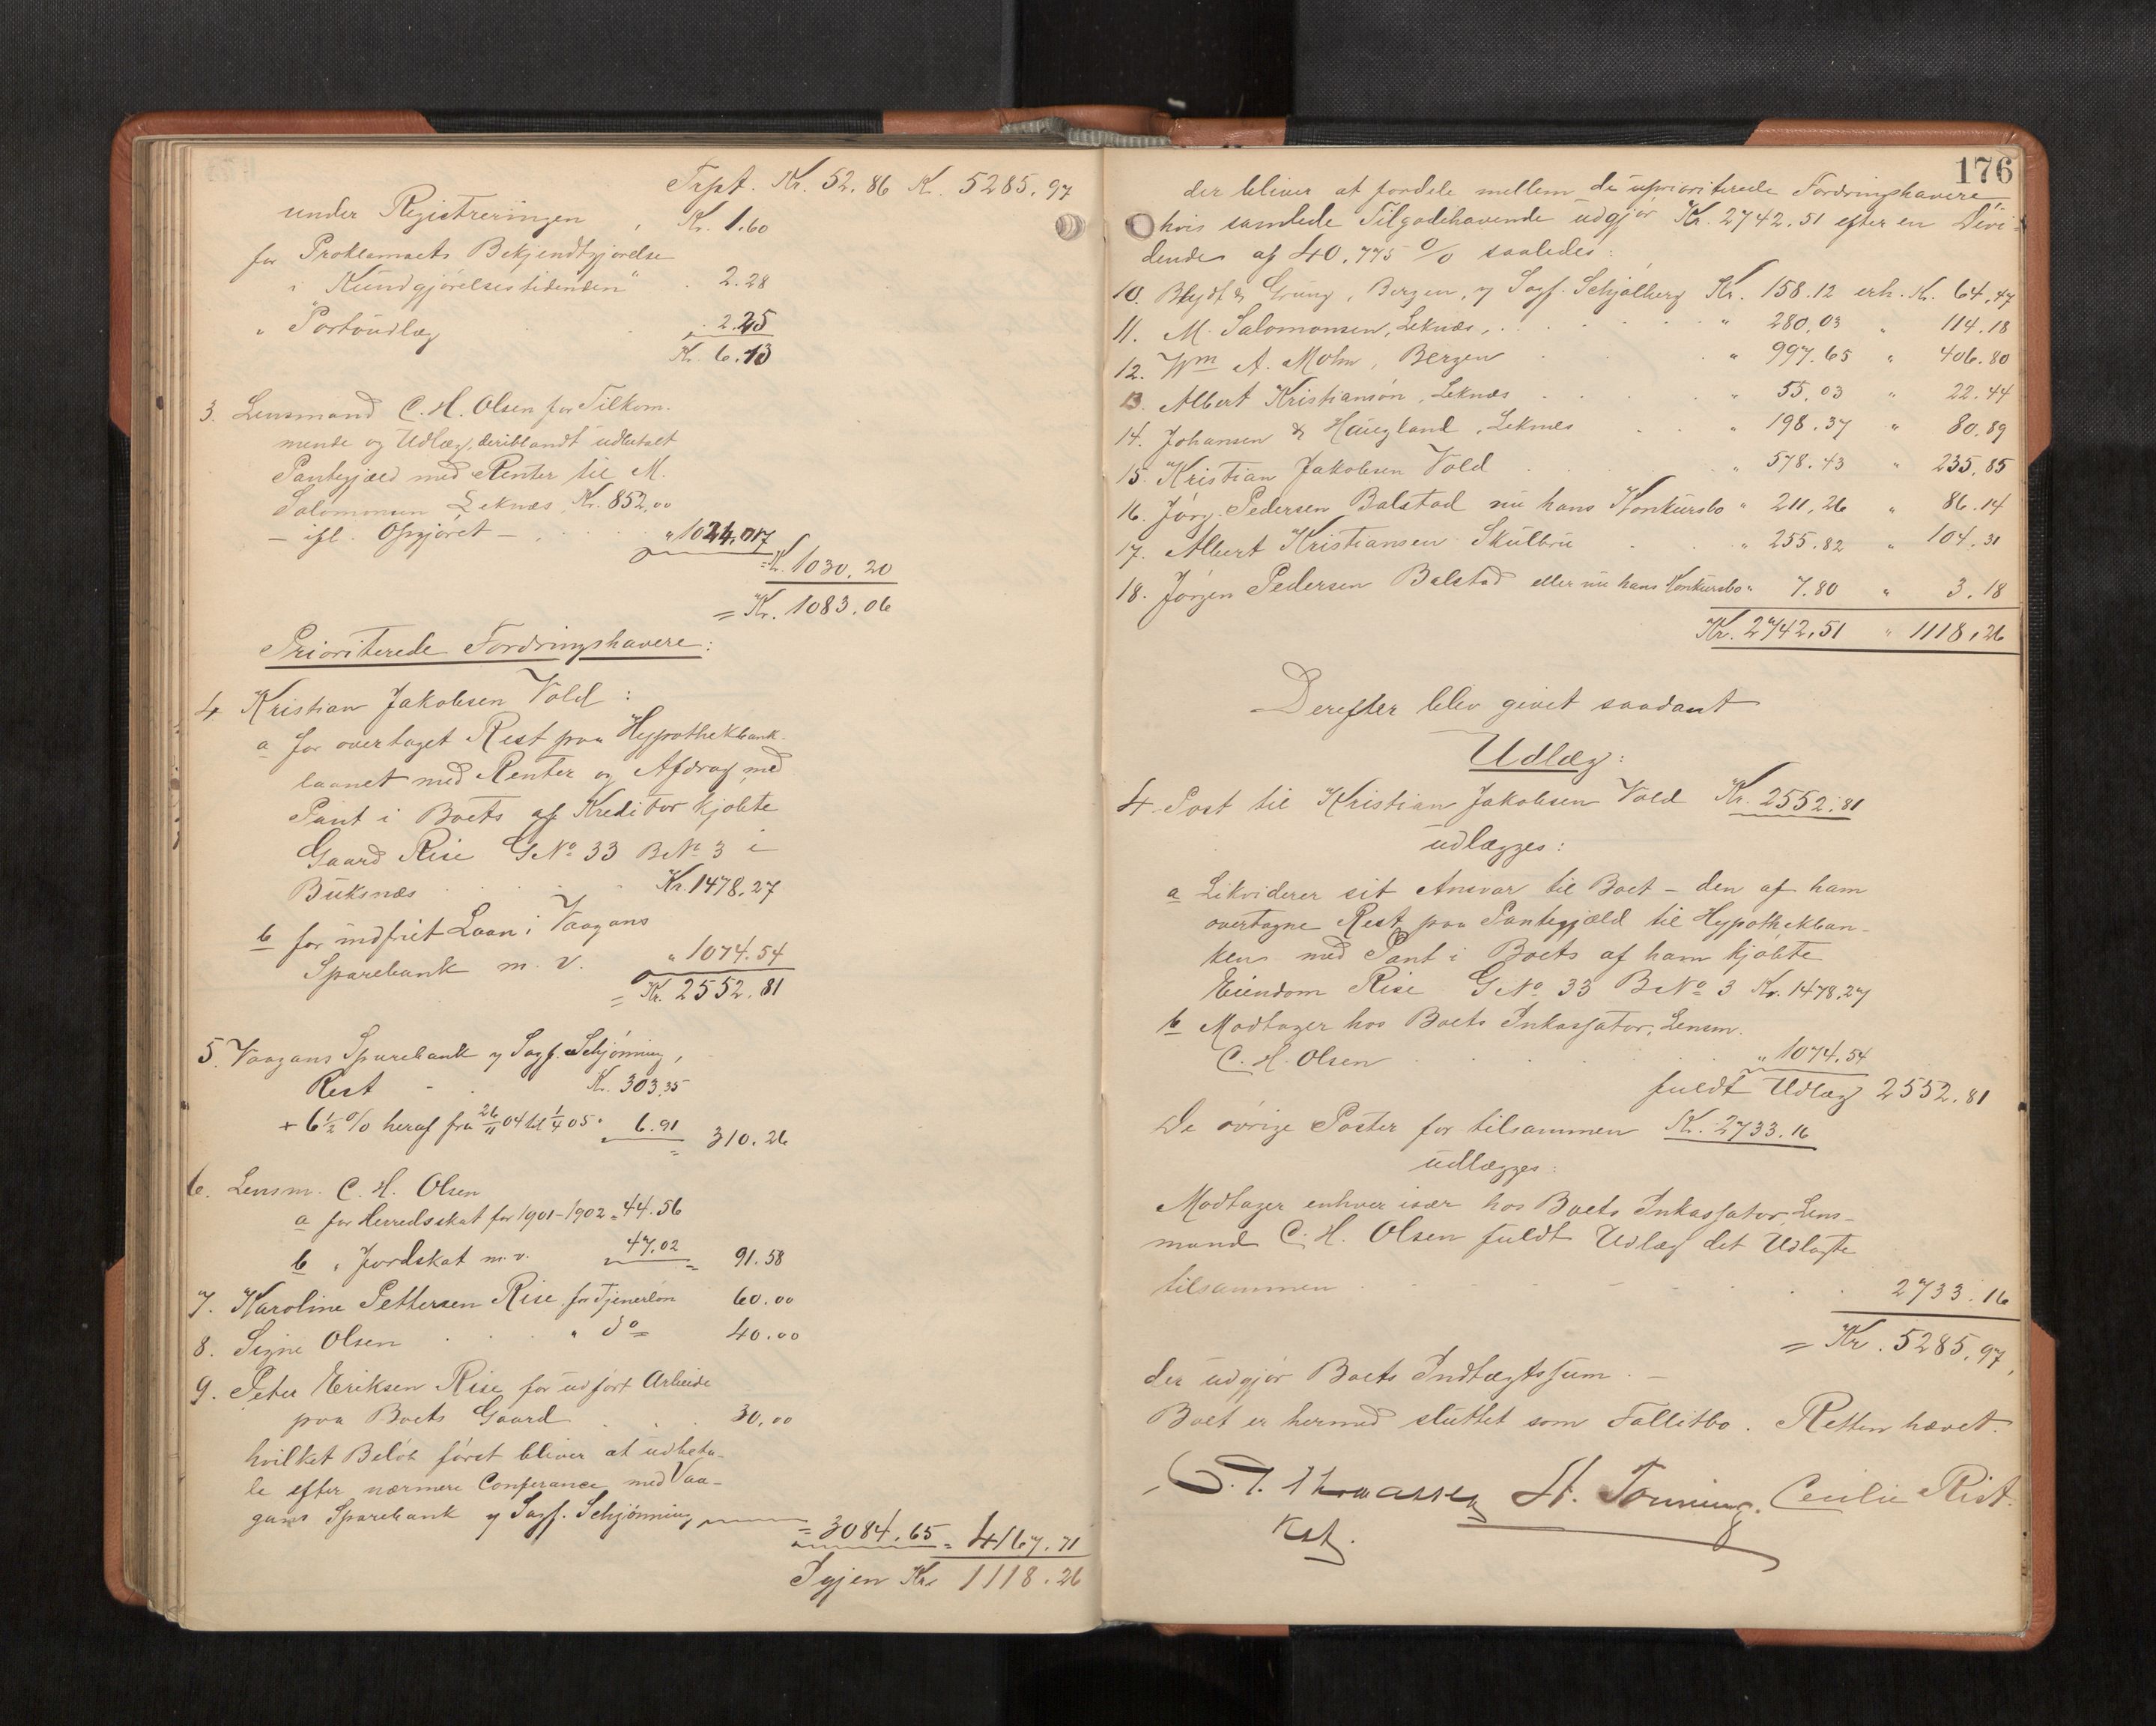 Trpt. Kr. 52.86 K. 5285.97
under Registreringen , Kr. 1.60
for Proklamaets Bekjendtgjörelse
i "Kundgjörelsestidenden" . 2.28
" Portoudlæg . . 2.25
Kr. 6.13
3. Lensmand C. H. Olsen for Tilkom-
mende og Udlæg, deriblandt udbetalt
Pantegjæld med Renter til M.
Salomonsen Leknæs, Kr. 852,00
- ifl. Opgjöret - . . . " 1024.07
= K. 1030.20
= Kr. 1083.06
Prioriterede Fordringshavere:
4 Kristian Jakobsen Vold :
a for overtaget Rest paa Hypothekbank-
laanet med Renter og Afdrag med
Pant i Boets af Kreditor kjöbte
Gaard Rise G No 33 B No 3 i
Buksnæs . . . Kr. 1478,27
b for indfriet Laan i Vaagans
Sparebank m. v. " 1074.54
= Kr. 2552.81
5. Vaagans Sparebank v/ Sagf. Schjönning,
Rest - . Kr. 303.35
+ 6 1/2 % heraf fra 26/11 04 til 1/4 05 " 6.91
= 310.26
6. Lensm. C. H. Olsen
a for Herredsskat for 1901-1902 " 44.56
b " Jordskat m. v. 47.02 = 91.58
7. Karoline Pettersen Rise for Tjenerlön 60.00
8. Signe Olsen . . " do 40.00
9. Peter Eriksen Rise for udfört Arbeide
paa Boets Gaard . . . 30,00
hvilket Belöb först bliver at udbeta-
le efter nærmere Conferance med Vaa-
gans Sparebank v/ Sagf. Schjönning
= 3084.65 = 4167.71
Igjen Kr. 1118.26
176
der bliver at fordele mellem de uprioriterede Fordringshavere,
hvis samlede Tilgodehavende udgjör Kr. 2742.51 efter en Divi-
dende af 40.775 % saaledes :
10. Blydt & Grung, Bergen, v/ Sagf. Schjölberg Kr. 158.12 erh. K. 64.47
11. M. Salomonsen, Leknæs, . . . " 280,03 " 114.18
12. Wm A. Mohn, Bergen . . " 997.65 " 406.80
13. Albert Kristiansön, Leknæs . . . " 55,03 " 22.44
14. Johansen & Haugland, Leknæs . . " 198.37 " 80.89
15. Kristian Jakobsen Vold . . . " 578.43 " 235.85
16. Jörg. Pedersen Balstad nu hans Konkursbo " 211,26 " 86.14
17. Albert Kristiansen Skulbru . . " 255.82 " 104.31
18. Jörgen Pedersen Balstad eller nu hans Konkursbo " 7.80 " 3.18
Kr. 2742,51 " 1118,26
Derefter blev givet saadant
Udlæg:
4 Post til Kristian Jakobsen Vold Kr. 2552.81
udlægges:
a Likviderer sit Ansvar til Boet - den af ham
overtagne Rest paa Pantegjæld til Hypothekban-
ken med Pant i Boets af ham kjöbte
Eiendom Rise G No 33 B No 3 Kr. 1478.27
b Modtager hos Boets Inkassator, Lensm.
C. H. Olsen . . . " 1074.54
fuldt Udlæg 2552.81
De övrige Poster for tilsammen K. 2733.16
udlægges:
Modtager enhver især hos Boets Inkassator, Lens-
mand C. H. Olsen fuldt Udlæg det Udlagte
tilsammen . . . 2733.16
= Kr. 5285.97,
der udgjör Boets Indtægtssum. -
Boet er hermed sluttet som Fallitbo. Retten hævet.
Thomassen H. Tönning. Cecilie Rist.
Kst.